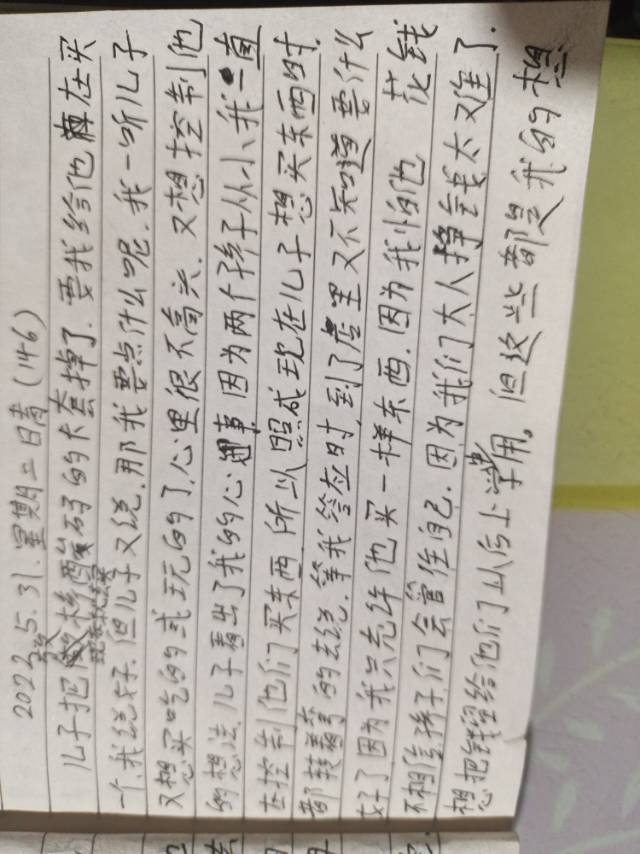 2022.5.31.星期二日青(146)
儿子把 的卡套掉了.要我给他 在买
一个,我说好.但儿子又说.那我要点什么呢.我一听儿子
又想买吃的或玩的了,心里很不高兴.又想控制他
的想法.儿子看出了我的心事,因为两个孩子从小我一直
在控制他们买东西 所以照成现在儿子想买东西时.
都 的去说.等我答应时,到了店里又不知道要什么
好了因为我只允许他买一样东西.因为我怕他 花钱
不相信孩子们会管住自己.因为我们大人挣钱太难了.
想把钱留给他们以后上学用。但这些都是我的想